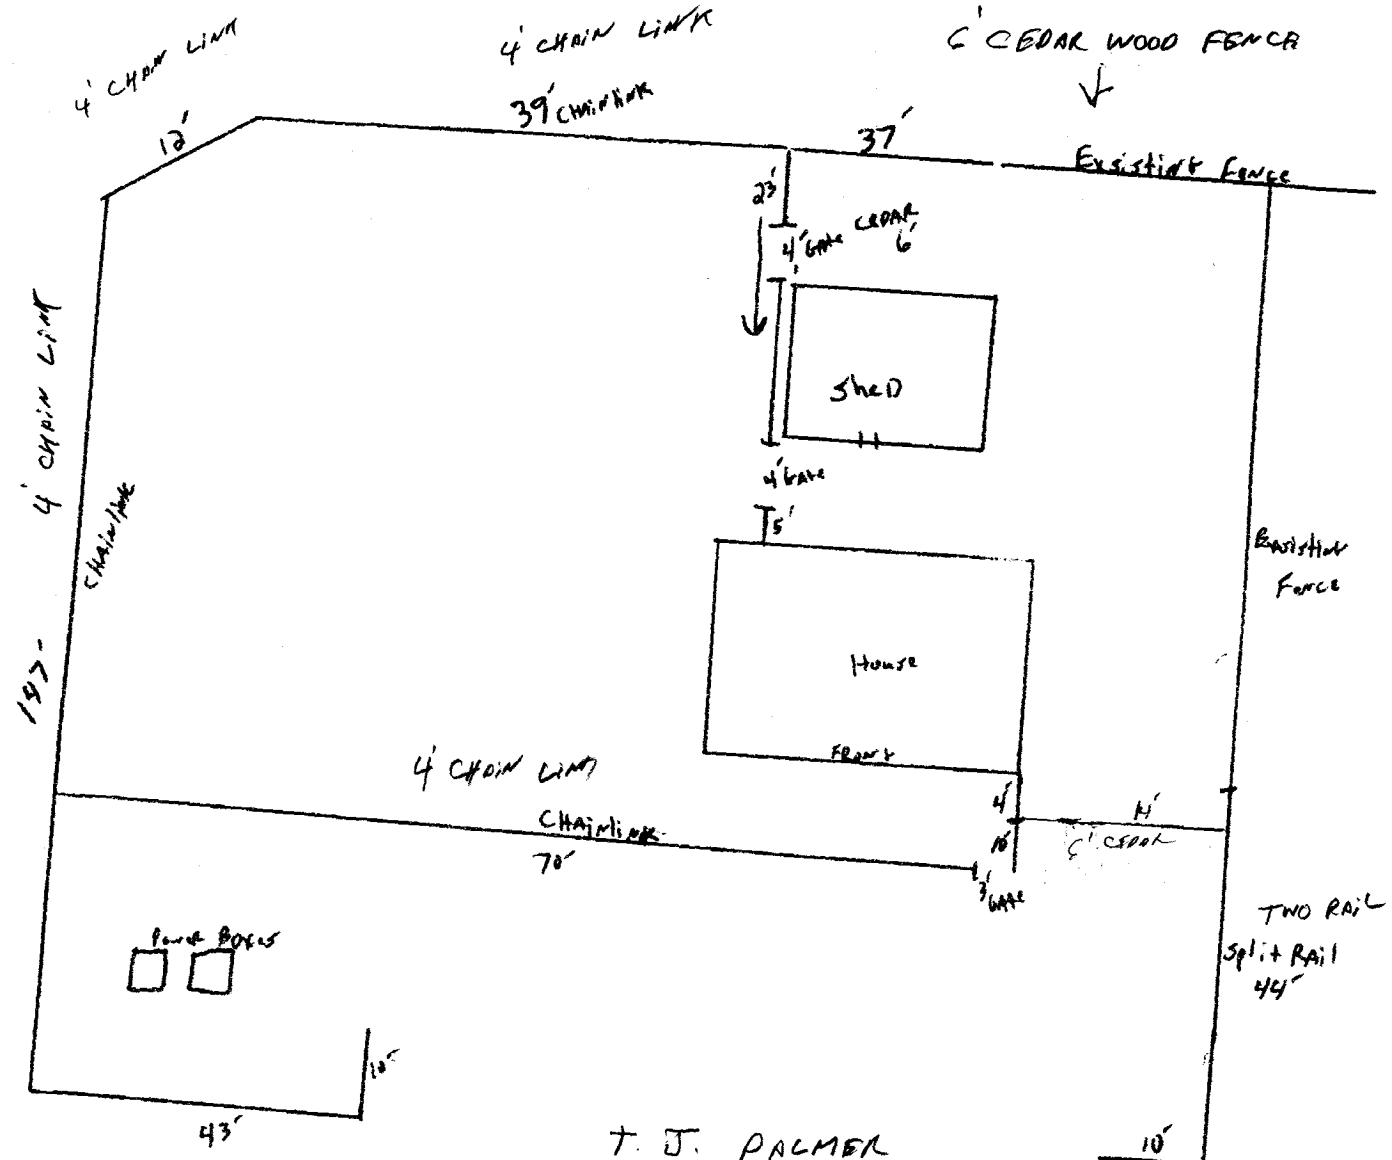 4' CHAIN LINK
4' CHAIN LINK
6' CEDAR WOOD FENCE
12'
39' CHAINLINK
37'
Exsisting Fence
23'
4' GATE CEDAR
6'
4' CHAIN LINK
SheD
4' GATE
5'
CHAINLINK
Exsisting
Fence
House
FRONT
4' CHAIN LINK
CHAINLINK
70'
4'
10'
14'
6' CEDAR
3'
GATE
TWO RAIL
Split RAil
44'
Power Boxes
10'
43'
T. J. PALMER
10'